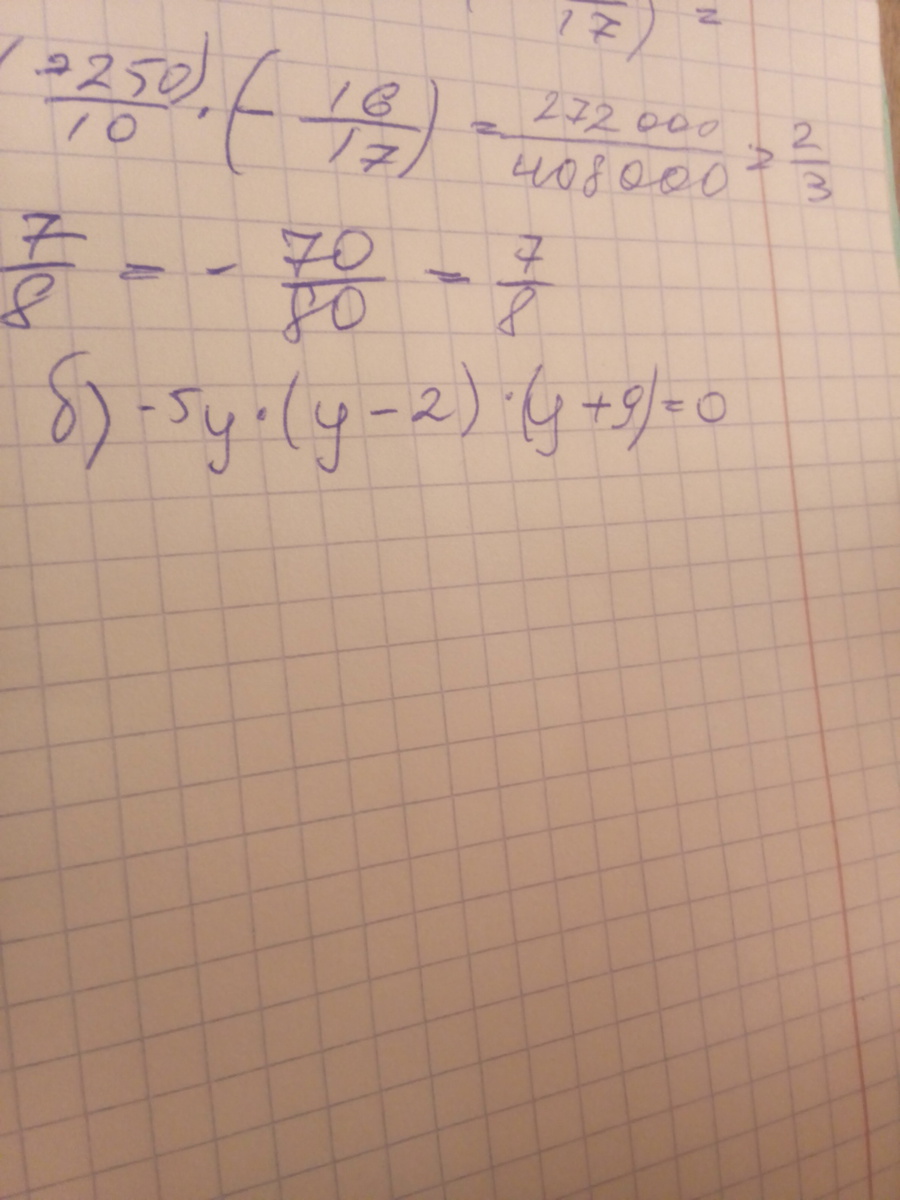 17) =
(-250)/10 · (- 16/17) = 272000/408000 = 2/3
7/8 = - 70/80 = 7/8
б) -5y·(y-2)·(y+9)=0